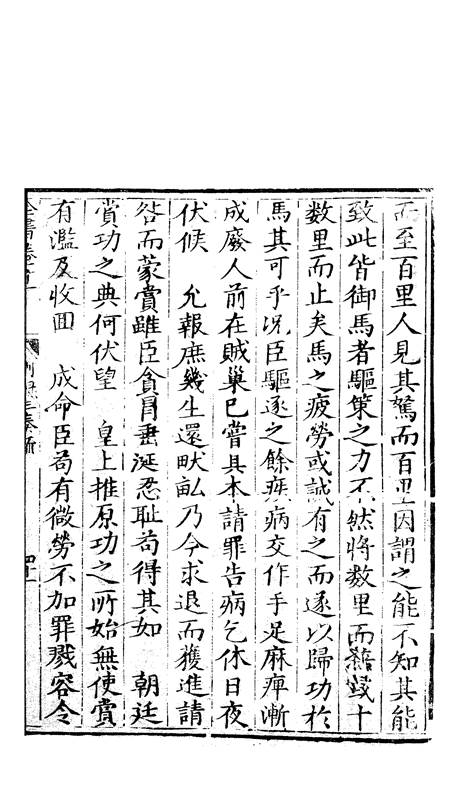 而至百里人見其駑而百里因謂之能不知其能
致此皆御馬者驅策之力不然將数里而蹶或十
数里而止矣馬之疲勞或誠有之而遂以歸功於
馬其可乎况臣驅逐之餘疾病交作手足麻痺漸
成廢人前在賊巢已嘗具本請罪告病乞休日夜
伏候 允報庶幾生還畎畒乃今求退而獲進請
咎而蒙賞雖臣貪冒垂涎忍耻苟得其如 朝廷
賞功之典何伏望 皇上推原功之所始無使賞
有濫及收囬 成命臣苟有微勞不加罪戮容令
全書卷
奏疏